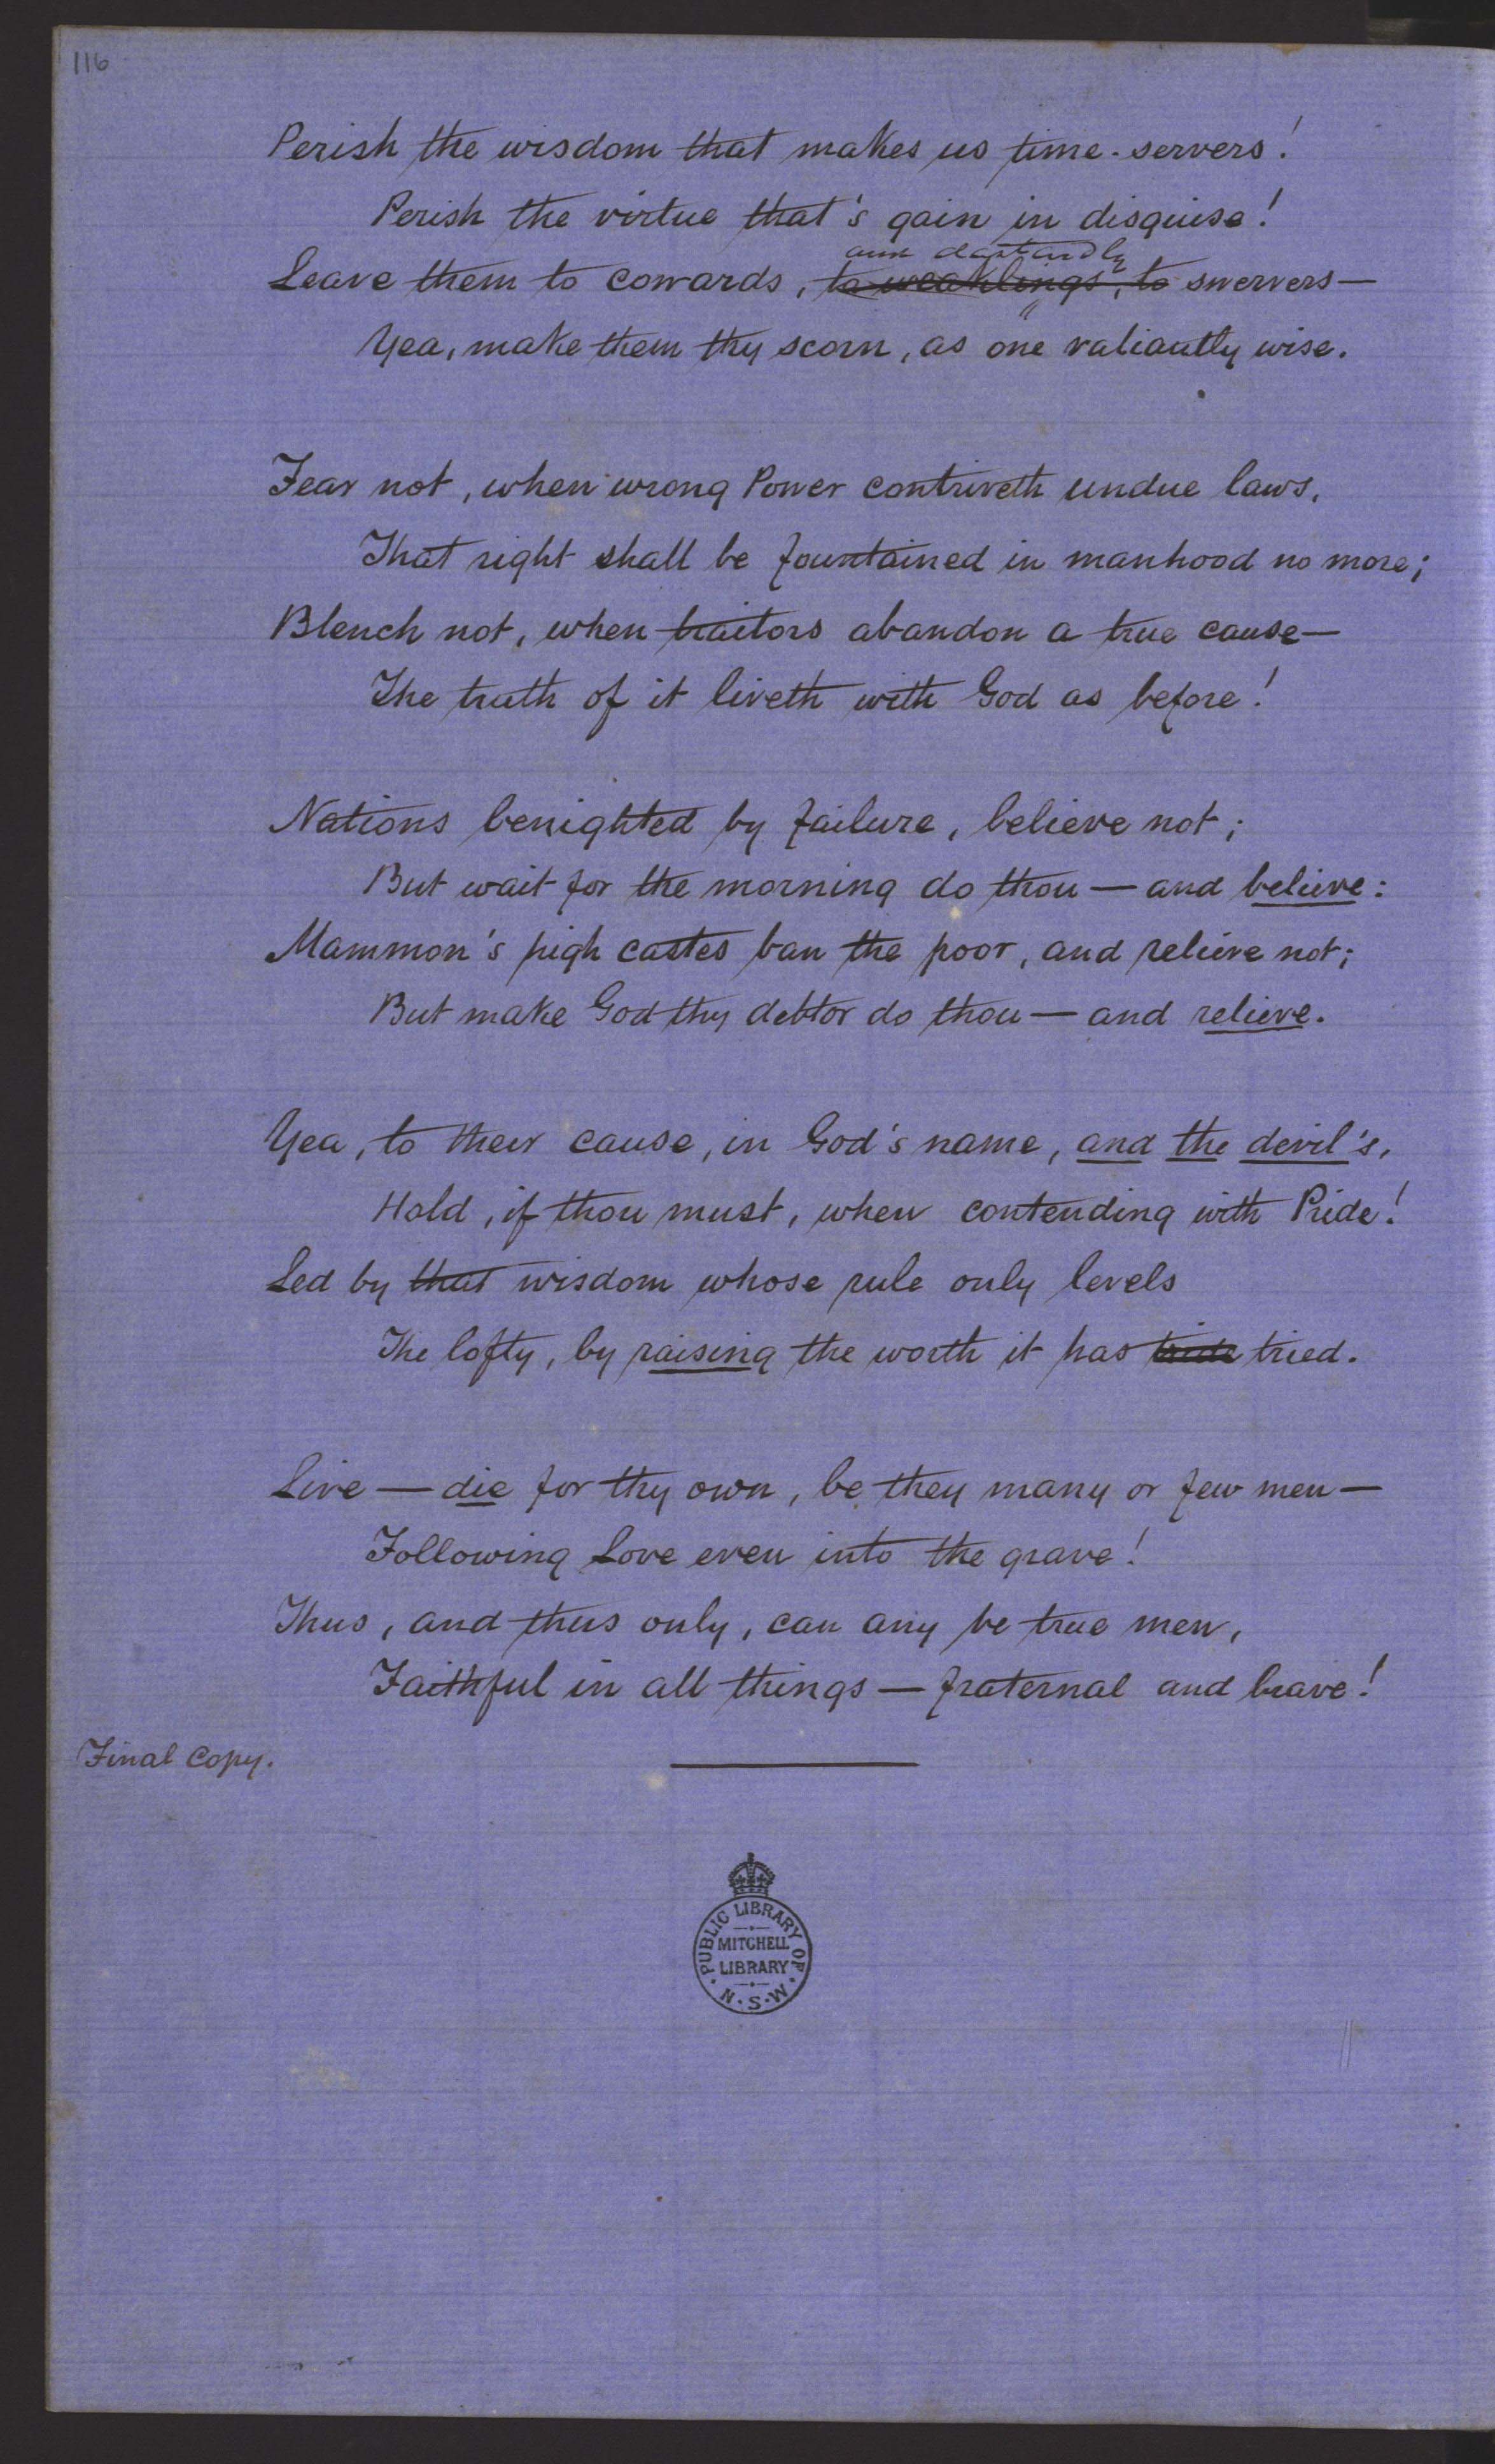 116
Perish the wisdom that makes us time-servers!
Perish the virtue that's gain in disguise!
and dastardly
Leave them to cowards, to weaklings, to swervers—
Yea, make them thy scorn, as one valiantly wise.
Fear not, when wrong Power contriveth undue laws,
That right shall be fountained in manhood no more;
Blench not, when traitors abandon a true cause—
The truth of it liveth with God as before!
Nations benighted by failure, believe not;
But wait for the morning do thou — and believe:
Mammon's high castes ban the poor, and relieve not;
But make God thy debtor do thou — and relieve.
Yea, to their cause, in God's name, and the devil's,
Hold, if thou must, when contending with Pride!
Led by that wisdom whose rule only levels
The lofty, by raising the worth it has tried.
Live — die for thy own, be they many or few men—
Following Love even into the grave!
Thus, and thus only, can any be true men,
Faithful in all things — fraternal and brave!
Final Copy.
PUBLIC LIBRARY OF N.S.W.
MITCHELL
LIBRARY